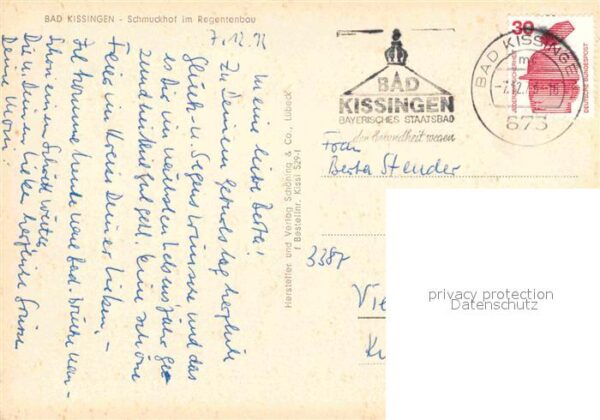 BAD KISSINGEN - Schmuckhof im Regentenbau
7.12.73
Meine liebe Berta!
Zu Deinem Geburtstag herzliche
Glück- u. Segenswünsche und das
es Dir im nächsten Lebensjahr ge-
sundheitlich gut geht. Eine schöne
Feier im Kreise Deiner Lieben, -
Ich komme heute vom Bad.
Schon einen Schritt weiter.
Dir u. Deinen Lieben herzliche Grüsse
Deine
Hersteller und Verlag Schöning & Co., Lübeck
1 Bestellnr. Kissi 529-1
BAD
KISSINGEN
BAYERISCHES STAATSBAD
der Gesundheit wegen
BAD KISSINGEN
m
-7.12.73-16
873
30
DEUTSCHE BUNDESPOST
Frau
Berta Stender
3387
Vie
privacy protection
Datenschutz